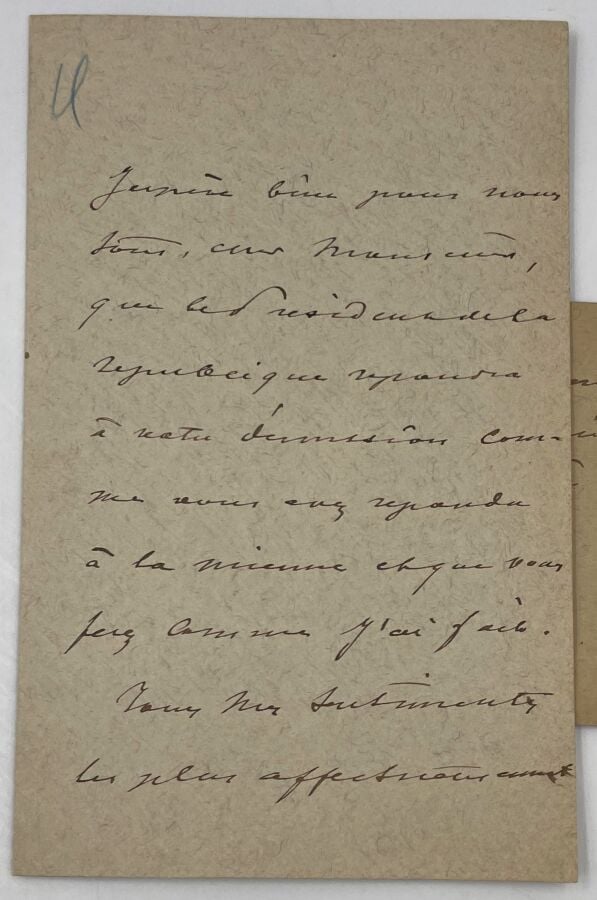 J'espère bien pour nous
tous, cher Monsieur,
que le Président de la
republique repondra
à votre démission com-
me vous avez repondu
à la mienne et que vous
ferez comme j'ai fait.
Tous mes sentiments
les plus affectueusement